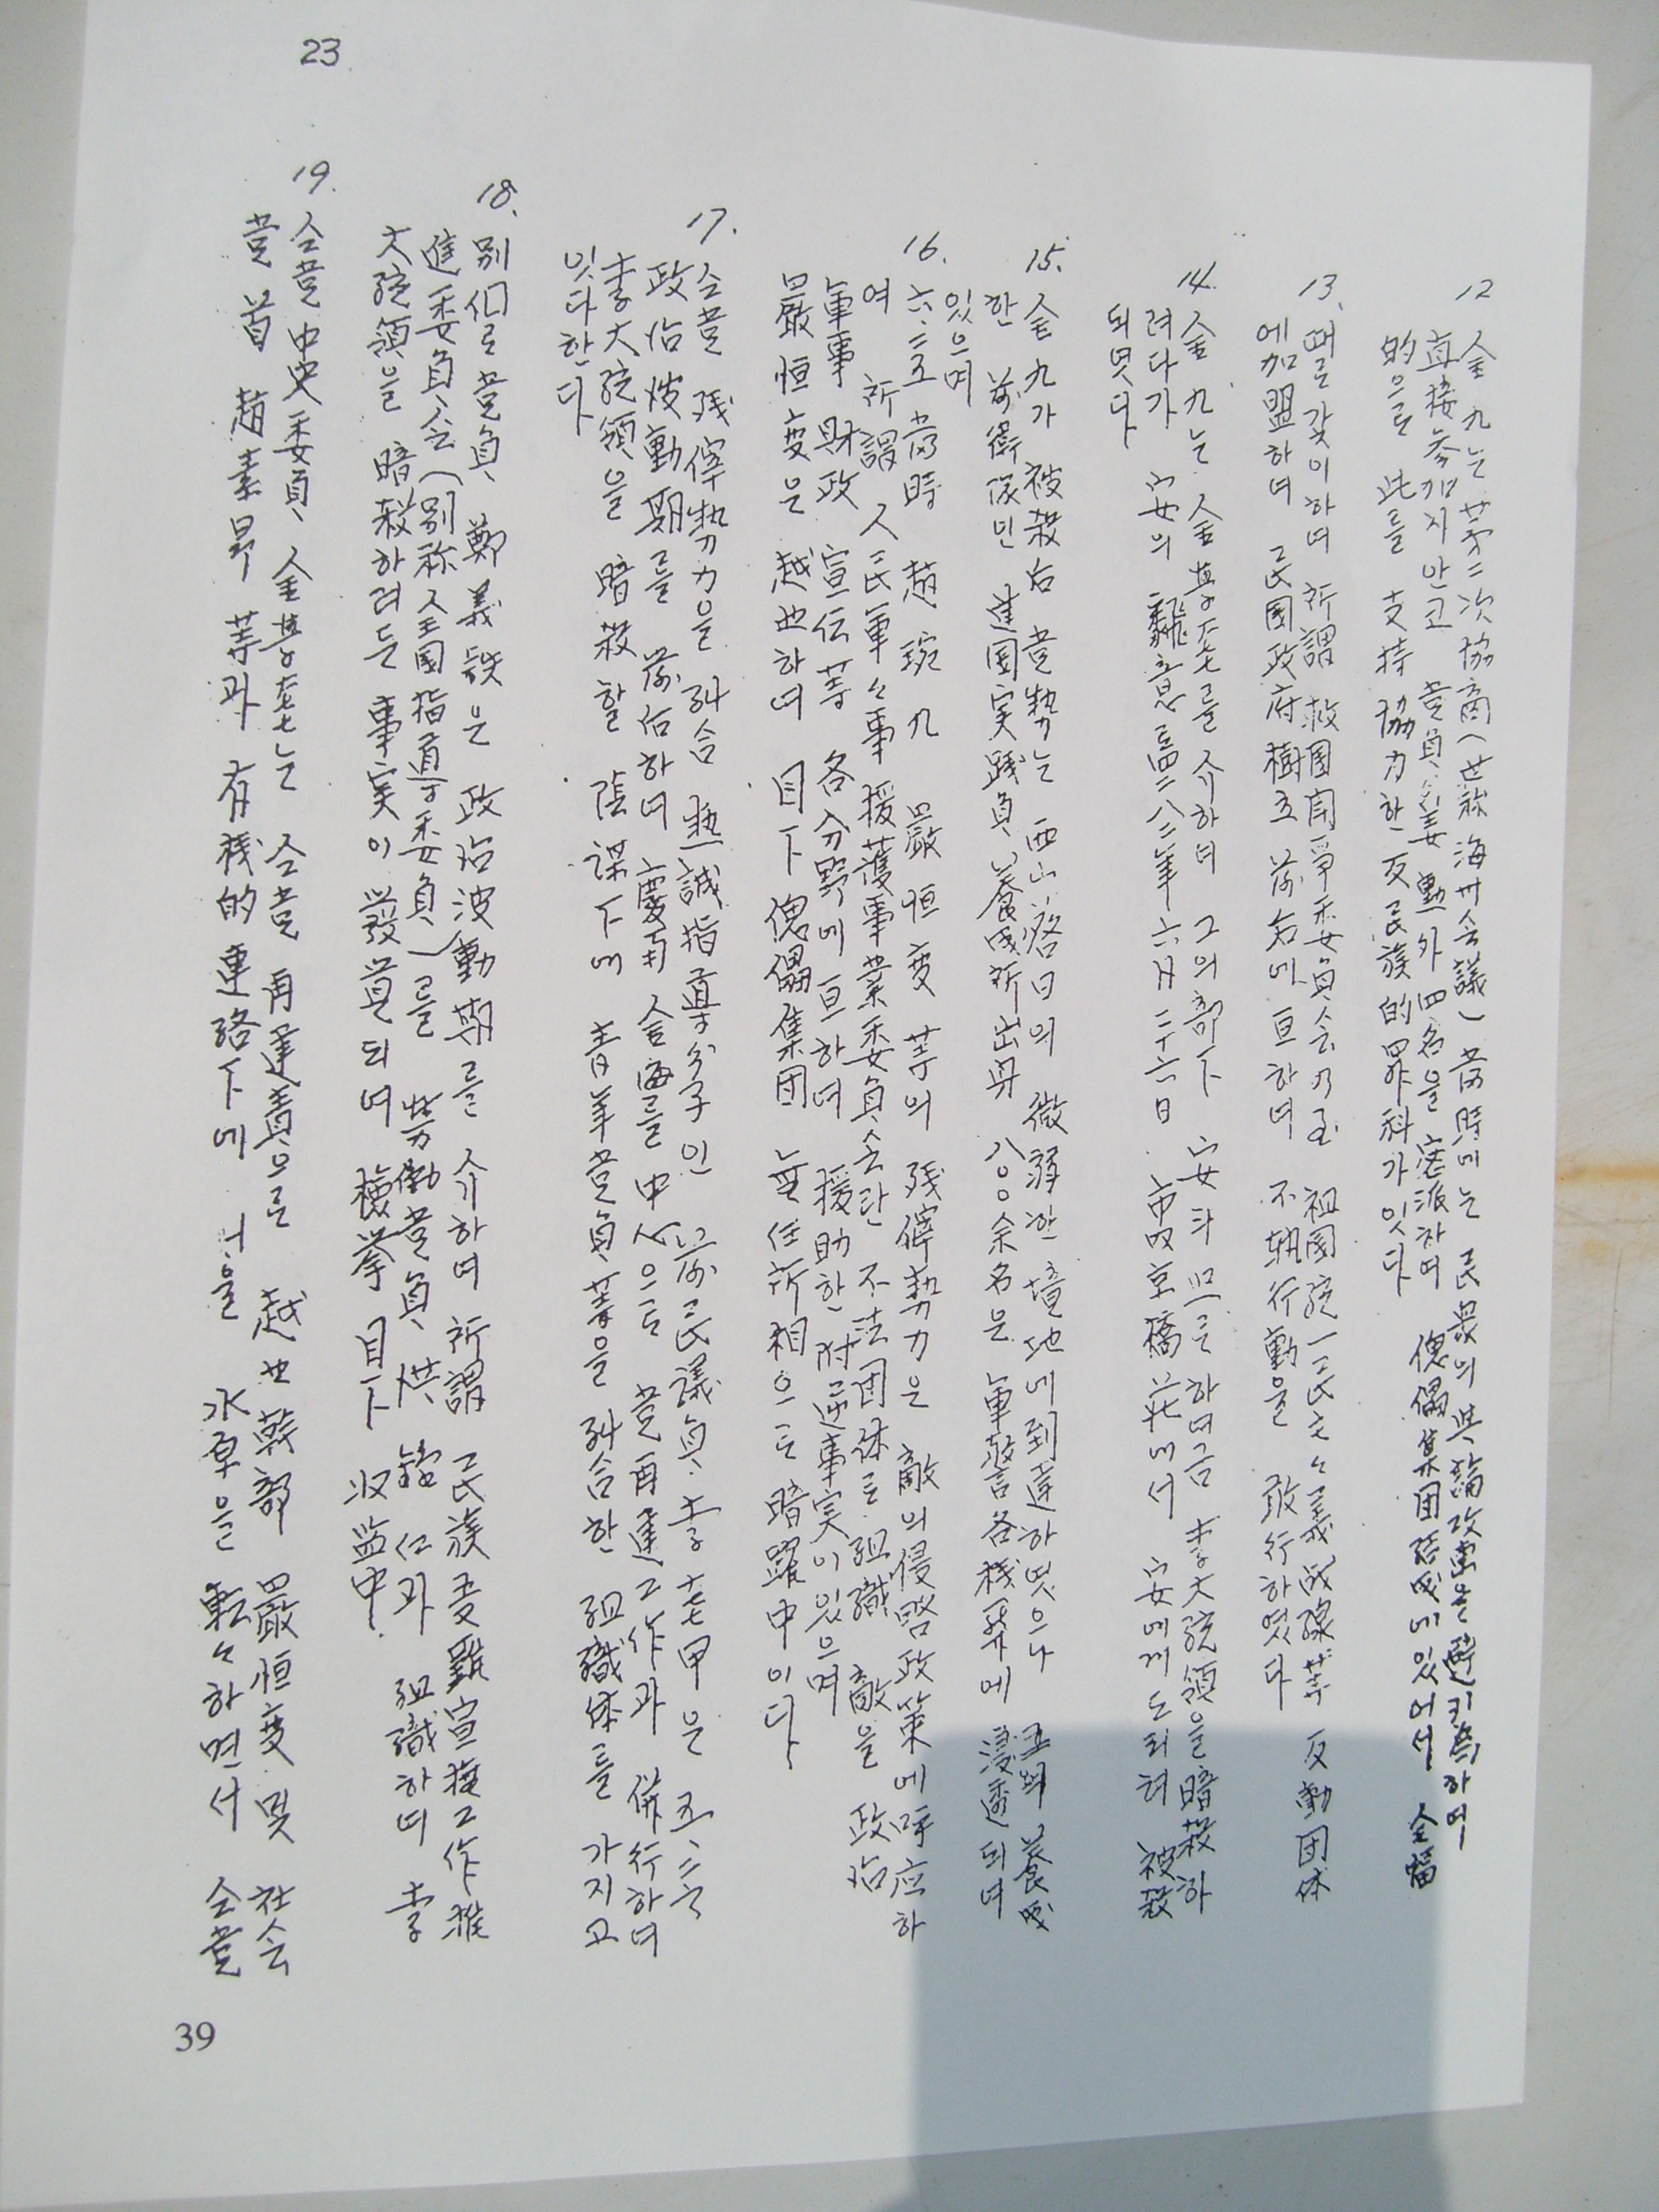 23
12 金九는 第二次協商(一名称海州会議) 當時에는 民衆의 與論攻擊을 避키 爲하여
直接参加치 안고 党員 姜 勳外四名을 密派하며 傀儡集団結成에 있어서 全幅
的으로 此를 支持協力한 反民族的 罪科가 잇다
13. 때를 갖이하며 所謂 救國闘爭委員会 乃至 祖國統一民主々義戦線等 反動団体
에 加盟하며 民國政府樹立 前后에 亘하며 不軌行動을 敢行하였다
14. 金九는 金学奎를 介하며 그의 部下 安斗熙로 하여금 李大統領을 暗殺하
려다가 安의 飜意로 四二八二年 六月 二十六日 市内 京橋莊에서 安에게 도리혀 被殺
되엿다
15. 金九가 被殺后 党勢는 西山落日의 微弱한 境地에 到達하엿으나 养成
한 前衛隊인 建国実践員養成所出身 八〇〇余名은 軍警言各機関에 浸透되며
있으며
16. 六二五 當時 趙琬九 嚴恒燮 等의 残滓勢力은 敵의 侵略政策에 呼应하
여 所謂 人民軍々事援護事業委員会란 不法団体를 組織 敵을 政治
軍事 財政 宣伝等 各分野에 亘하며 援助한 附逆事実이 있으며
嚴恒燮은 越北하며 目下 傀儡集団 無任所相으로 暗躍中이다
17. 仝党 残滓勢力을 糾合 熱誠指導分子인 前民議員 李 甲은 五、二六
政治波動期를 前后하며 慶南 金海를 中心으로 党再建工作과 併行하며
李大統領을 暗殺할 陰謀下에 青年党員等을 糾合한 組織体를 가지고
잇다 한다
18. 別们로 党員 鄭義鉄은 政治波動期를 介하며 所謂 民族受難宣撫工作推
進委員会(别称 全國指導委員)를 劳働党員 洪 仁과 組織하며 李
大統領을 暗殺하려든 事実이 發覚되며 檢挙 目下 収监中
19. 仝党 中央委員、金学奎는 仝党 再建責으로 越北幹部 嚴恒燮 및 社会
党首 趙素昻 等과 有機的 連絡下에 너울 水原을 転々하면서 仝党
39